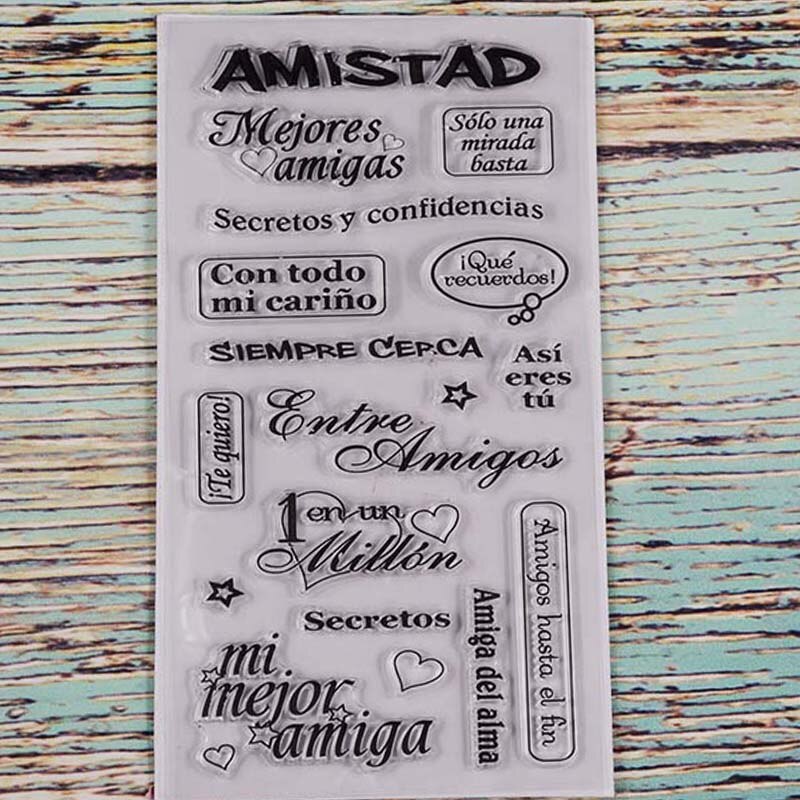 AMISTAD
Mejores
amigas
Sólo una
mirada
basta
Secretos y confidencias
Con todo
mi cariño
¡Qué
recuerdos!
SIEMPRE CERCA
Así
eres
tú
¡Te quiero!
Entre
Amigos
1 en un
Millón
Amigos hasta el fin
Secretos
Amiga del alma
mi
mejor
amiga